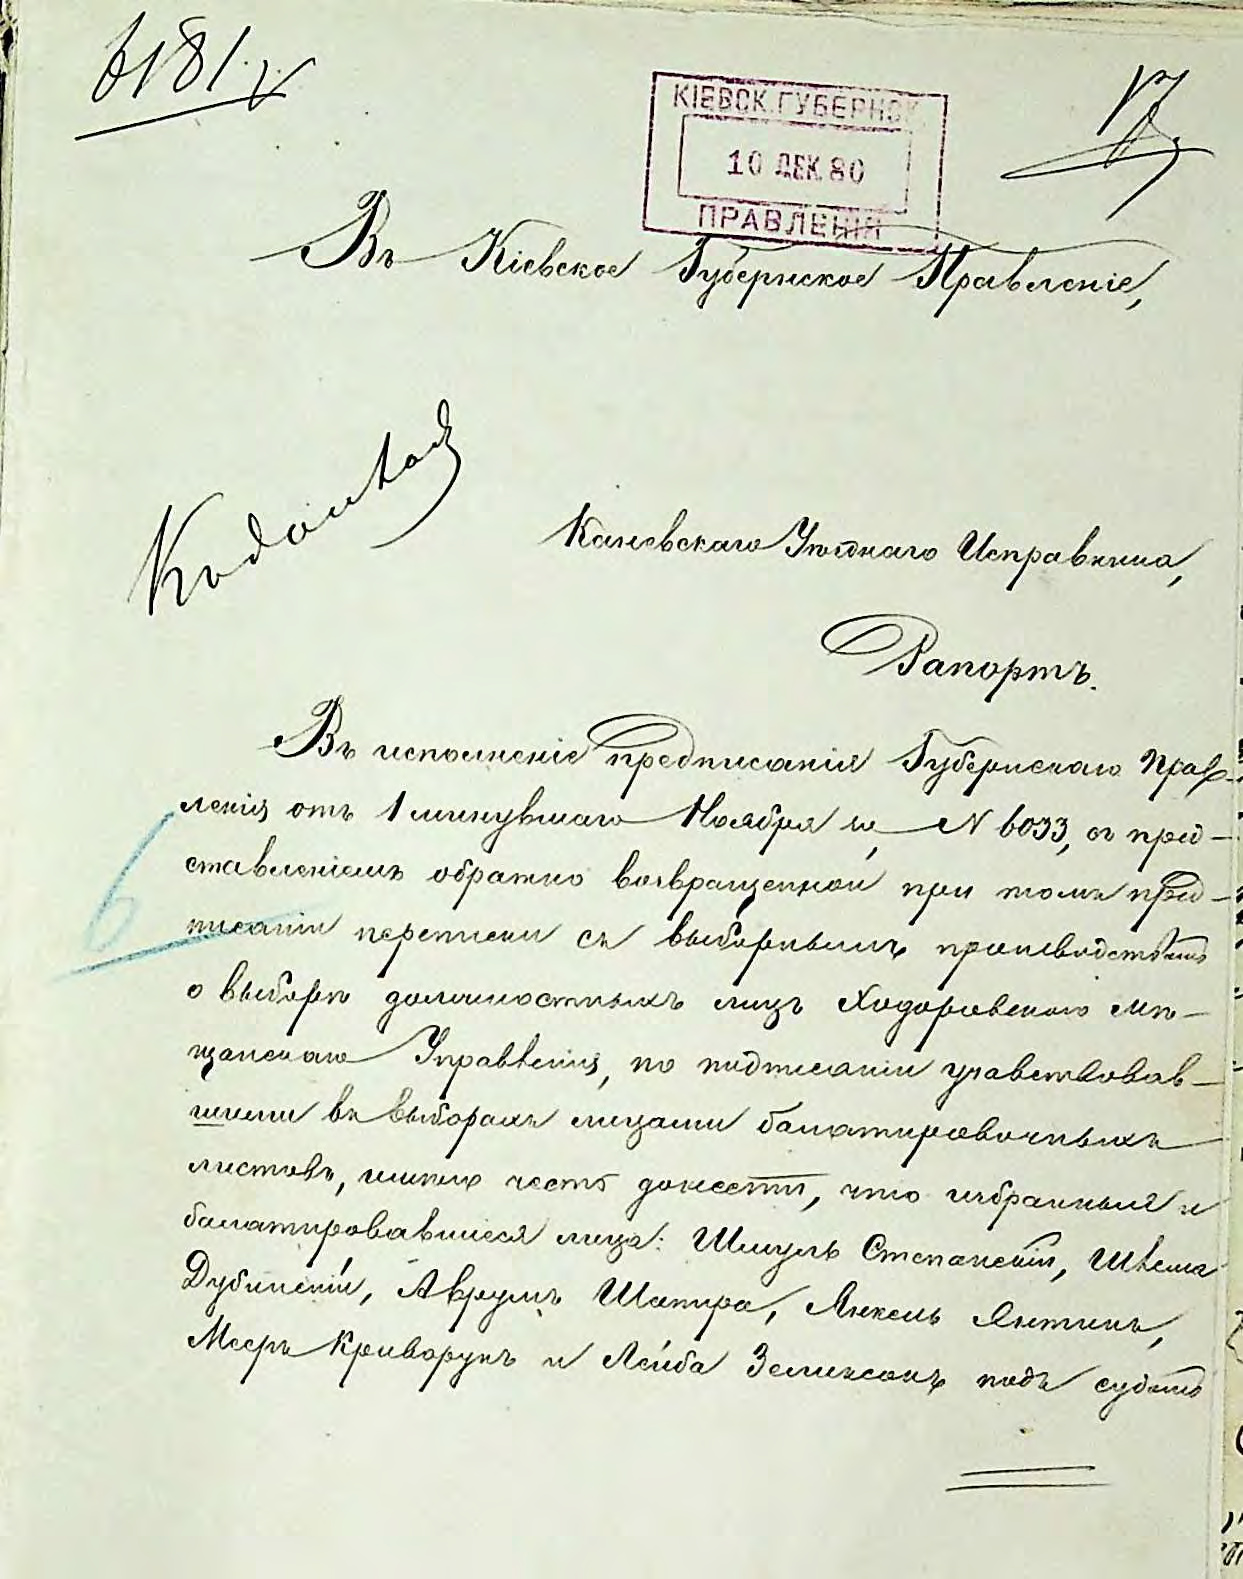 6181.
КІЕВСК. ГУБЕРНСК.
10 ДЕК. 80
ПРАВЛЕНІЯ
Въ Кіевское Губернское Правленіе,
Каневскаго Уѣзднаго Исправника,
Рапортъ.
Въ исполненіе предписанія Губернскаго Прав-
ленія отъ 1 минувшаго Ноября за N 6033, съ пред-
ставленіемъ обратно возвращенной при томъ пред-
писаніи переписки съ выборнымъ производствомъ
о выборѣ должностныхъ лицъ Ходоровскаго мѣ-
щанскаго Управленія, по подписаніи участвовав-
шими въ выборахъ лицами балатировочныхъ
листовъ, имѣю честь донести, что избранныя и
балатировавшіеся лица: Шмуль Степанскій, Шлема
Дубинскій, Аврумъ Шапира, Янкель Янтинъ,
Мееръ Криворукъ и Лейба Зеликсонъ подъ судомъ
6